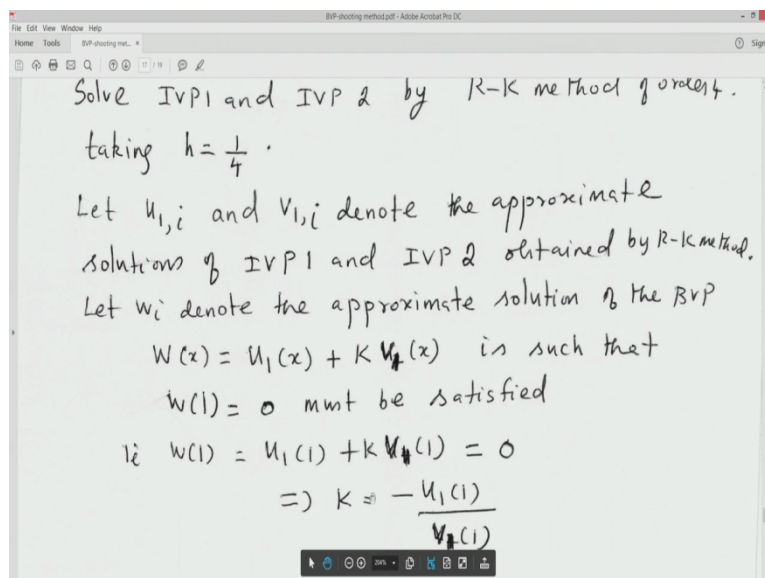 BVP-shooting method.pdf - Adobe Acrobat Pro DC
File Edit View Window Help
Home Tools BVP-shooting met... × Sign
17 / 19
Solve IVP1 and IVP 2 by R-K method of order 4.
taking h = 1/4 .
Let u₁,i and v₁,i denote the approximate
solutions of IVP1 and IVP 2 obtained by R-K method.
Let wi denote the approximate solution of the BVP
W(x) = u₁(x) + K (x) is such that
W(1) = 0 must be satisfied
ie W(1) = u₁(1) + K (1) = 0
=) K = - u₁(1)
(1)
204%